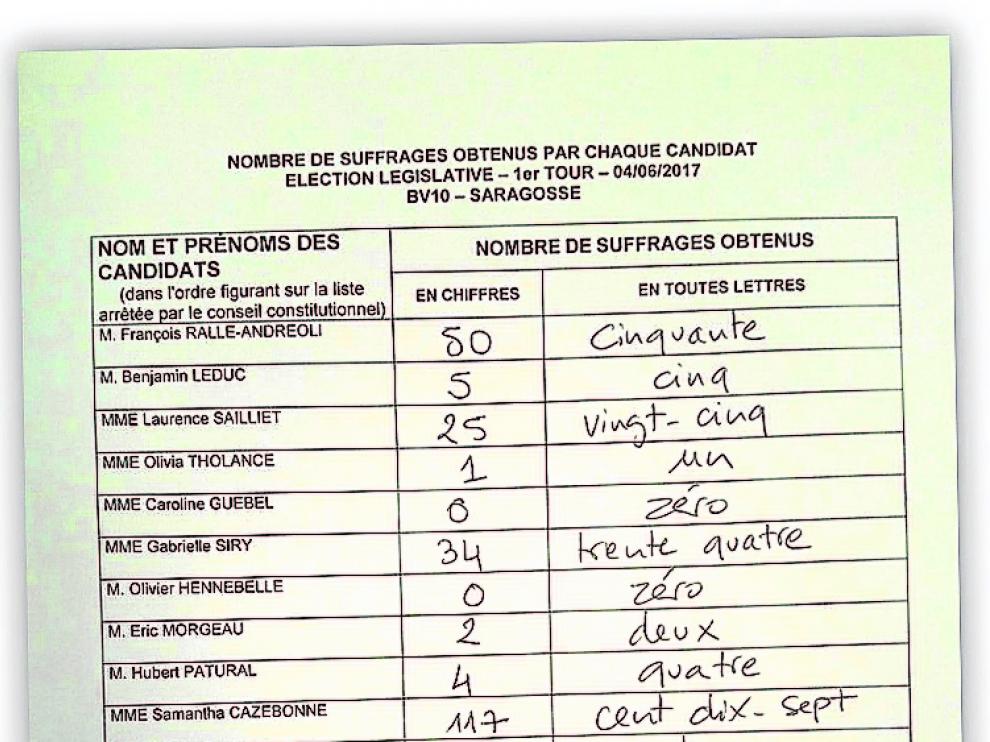 NOMBRE DE SUFFRAGES OBTENUS PAR CHAQUE CANDIDAT
ELECTION LEGISLATIVE – 1er TOUR – 04/06/2017
BV10 – SARAGOSSE
NOM ET PRÉNOMS DES
CANDIDATS
(dans l'ordre figurant sur la liste
arrêtée par le conseil constitutionnel)
NOMBRE DE SUFFRAGES OBTENUS
EN CHIFFRES EN TOUTES LETTRES
M. François RALLE-ANDREOLI 50 Cinquante
M. Benjamin LEDUC 5 cinq
MME Laurence SAILLIET 25 vingt-cinq
MME Olivia THOLANCE 1 un
MME Caroline GUEBEL 0 zéro
MME Gabrielle SIRY 34 trente quatre
M. Olivier HENNEBELLE 0 zéro
M. Eric MORGEAU 2 deux
M. Hubert PATURAL 4 quatre
MME Samantha CAZEBONNE 117 cent dix-sept